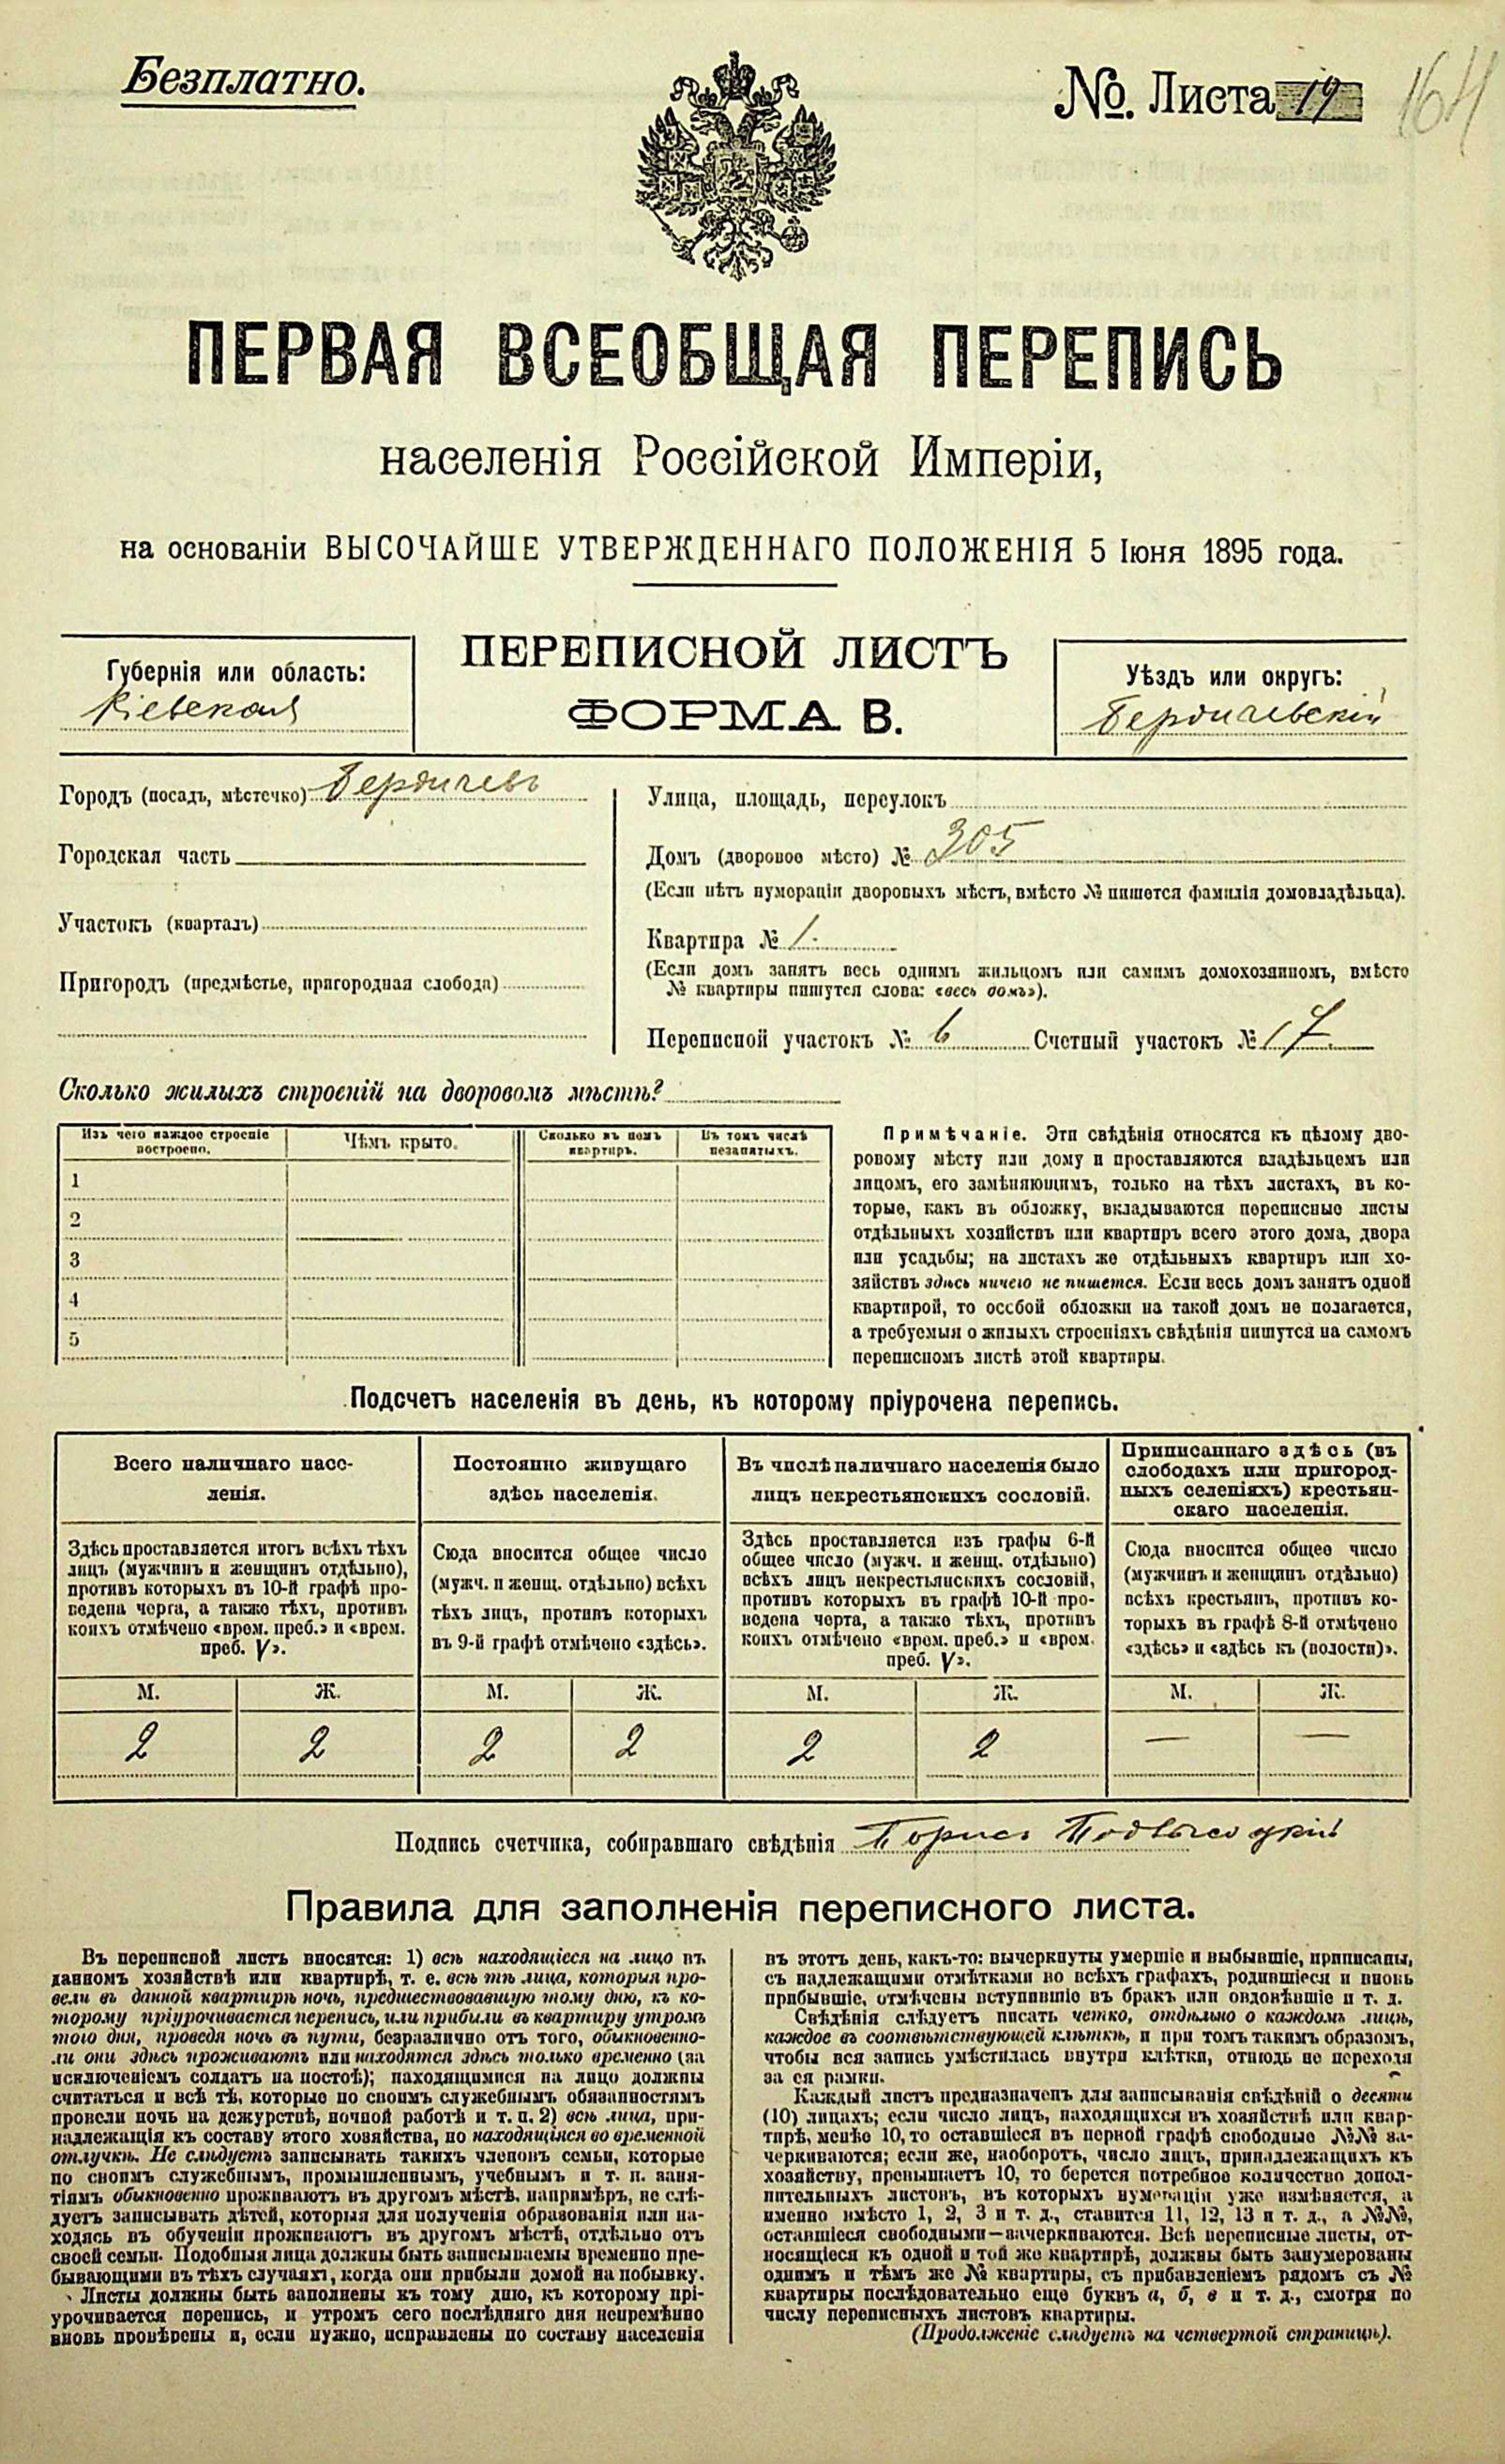 Безплатно.
№. Листа 19
164
ПЕРВАЯ ВСЕОБЩАЯ ПЕРЕПИСЬ
населенія Россійской Имперіи,
на основаніи ВЫСОЧАЙШЕ УТВЕРЖДЕННАГО ПОЛОЖЕНІЯ 5 Іюня 1895 года.
Губернія или область:
Кіевская
ПЕРЕПИСНОЙ ЛИСТЪ
ФОРМА В.
Уѣздъ или округъ:
Бердичевскій
Городъ (посадъ, мѣстечко) Бердичевъ
Городская часть
Участокъ (кварталъ)
Пригородъ (предмѣстье, пригородная слобода)
Улица, площадь, переулокъ
Домъ (дворовое мѣсто) № 305
(Если нѣтъ нумераціи дворовыхъ мѣстъ, вмѣсто № пишется фамилія домовладѣльца).
Квартира № 1.
(Если домъ занятъ весь однимъ жильцомъ или самимъ домохозяиномъ, вмѣсто
№ квартиры пишутся слова: «весь домъ»).
Переписной участокъ № 6 Счетный участокъ № 17.
Сколько жилыхъ строеній на дворовомъ мѣстѣ?
Изъ чего каждое строеніе
построено.
Чѣмъ крыто.
Сколько въ немъ
квартиръ.
Въ томъ числѣ
незанятыхъ.
1
2
3
4
5
Примѣчаніе. Эти свѣдѣнія относятся къ цѣлому дво-
ровому мѣсту или дому и проставляются владѣльцемъ или
лицомъ, его замѣняющимъ, только на тѣхъ листахъ, въ ко-
торые, какъ въ обложку, вкладываются переписные листы
отдѣльныхъ хозяйствъ или квартиръ всего этого дома, двора
или усадьбы; на листахъ же отдѣльныхъ квартиръ или хо-
зяйствъ здѣсь ничего не пишется. Если весь домъ занятъ одной
квартирой, то особой обложки на такой домъ не полагается,
а требуемыя о жилыхъ строеніяхъ свѣдѣнія пишутся на самомъ
переписномъ листѣ этой квартиры.
Подсчетъ населенія въ день, къ которому пріурочена перепись.
Всего наличнаго насе-
ленія.
Здѣсь проставляется итогъ всѣхъ тѣхъ
лицъ (мужчинъ и женщинъ отдѣльно),
противъ которыхъ въ 10-й графѣ про-
ведена черта, а также тѣхъ, противъ
коихъ отмѣчено «врем. преб.» и «врем.
преб. V».
Постоянно живущаго
здѣсь населенія.
Сюда вносится общее число
(мужч. и женщ. отдѣльно) всѣхъ
тѣхъ лицъ, противъ которыхъ
въ 9-й графѣ отмѣчено «здѣсь».
Въ числѣ наличнаго населенія было
лицъ некрестьянскихъ сословій.
Здѣсь проставляется изъ графы 6-й
общее число (мужч. и женщ. отдѣльно)
всѣхъ лицъ некрестьянскихъ сословій,
противъ которыхъ въ графѣ 10-й про-
ведена черта, а также тѣхъ, противъ
коихъ отмѣчено «врем. преб.» и «врем.
преб. V».
Приписаннаго здѣсь (въ
слободахъ или пригород-
ныхъ селеніяхъ) крестьян-
скаго населенія.
Сюда вносится общее число
(мужчинъ и женщинъ отдѣльно)
всѣхъ крестьянъ, противъ ко-
торыхъ въ графѣ 8-й отмѣчено
«здѣсь» и «здѣсь къ (волости)».
М. Ж. М. Ж. М. Ж. М. Ж.
2 2 2 2 2 2 — —
Подпись счетчика, собиравшаго свѣдѣнія Борисъ Подвысоцкій
Правила для заполненія переписного листа.
Въ переписной листъ вносятся: 1) всѣ находящіеся на лицо въ
данномъ хозяйствѣ или квартирѣ, т. е. всѣ тѣ лица, которыя про-
вели въ данной квартирѣ ночь, предшествовавшую тому дню, къ ко-
торому пріурочивается перепись, или прибыли въ квартиру утромъ
того дня, проведя ночь въ пути, безразлично отъ того, обыкновенно-
ли они здѣсь проживаютъ или находятся здѣсь только временно (за
исключеніемъ солдатъ на постоѣ); находящимися на лицо должны
считаться и всѣ тѣ, которые по своимъ служебнымъ обязанностямъ
провели ночь на дежурствѣ, ночной работѣ и т. п. 2) всѣ лица, при-
надлежащія къ составу этого хозяйства, но находящіяся во временной
отлучкѣ. Не слѣдуетъ записывать такихъ членовъ семьи, которые
по своимъ служебнымъ, промышленнымъ, учебнымъ и т. п. заня-
тіямъ обыкновенно проживаютъ въ другомъ мѣстѣ, напримѣръ, не слѣ-
дуетъ записывать дѣтей, которыя для полученія образованія или на-
ходясь въ обученіи проживаютъ въ другомъ мѣстѣ, отдѣльно отъ
своей семьи. Подобныя лица должны быть записываемы временно пре-
бывающими въ тѣхъ случаяхъ, когда они прибыли домой на побывку.
Листы должны быть заполнены къ тому дню, къ которому прі-
урочивается перепись, и утромъ сего послѣдняго дня непремѣнно
вновь провѣрены и, если нужно, исправлены по составу населенія
въ этотъ день, какъ-то: вычеркнуты умершіе и выбывшіе, приписаны,
съ надлежащими отмѣтками во всѣхъ графахъ, родившіеся и вновь
прибывшіе, отмѣчены вступившіе въ бракъ или овдовѣвшіе и т. д.
Свѣдѣнія слѣдуетъ писать четко, отдѣльно о каждомъ лицѣ,
каждое въ соотвѣтствующей клѣткѣ, и при томъ такимъ образомъ,
чтобы вся запись умѣстилась внутри клѣтки, отнюдь не переходя
за ея рамки.
Каждый листъ предназначенъ для записыванія свѣдѣній о десяти
(10) лицахъ; если число лицъ, находящихся въ хозяйствѣ или квар-
тирѣ, менѣе 10, то оставшіеся въ первой графѣ свободные №№ за-
черкиваются; если же, наоборотъ, число лицъ, принадлежащихъ къ
хозяйству, превышаетъ 10, то берется потребное количество допол-
нительныхъ листовъ, въ которыхъ нумерація уже измѣняется, а
именно вмѣсто 1, 2, 3 и т. д., ставится 11, 12, 13 и т. д., а №№,
оставшіеся свободными—зачеркиваются. Всѣ переписные листы, от-
носящіеся къ одной и той же квартирѣ, должны быть занумерованы
однимъ и тѣмъ же № квартиры, съ прибавленіемъ рядомъ съ №
квартиры послѣдовательно еще буквъ а, б, в и т. д., смотря по
числу переписныхъ листовъ квартиры.
(Продолженіе слѣдуетъ на четвертой страницѣ).